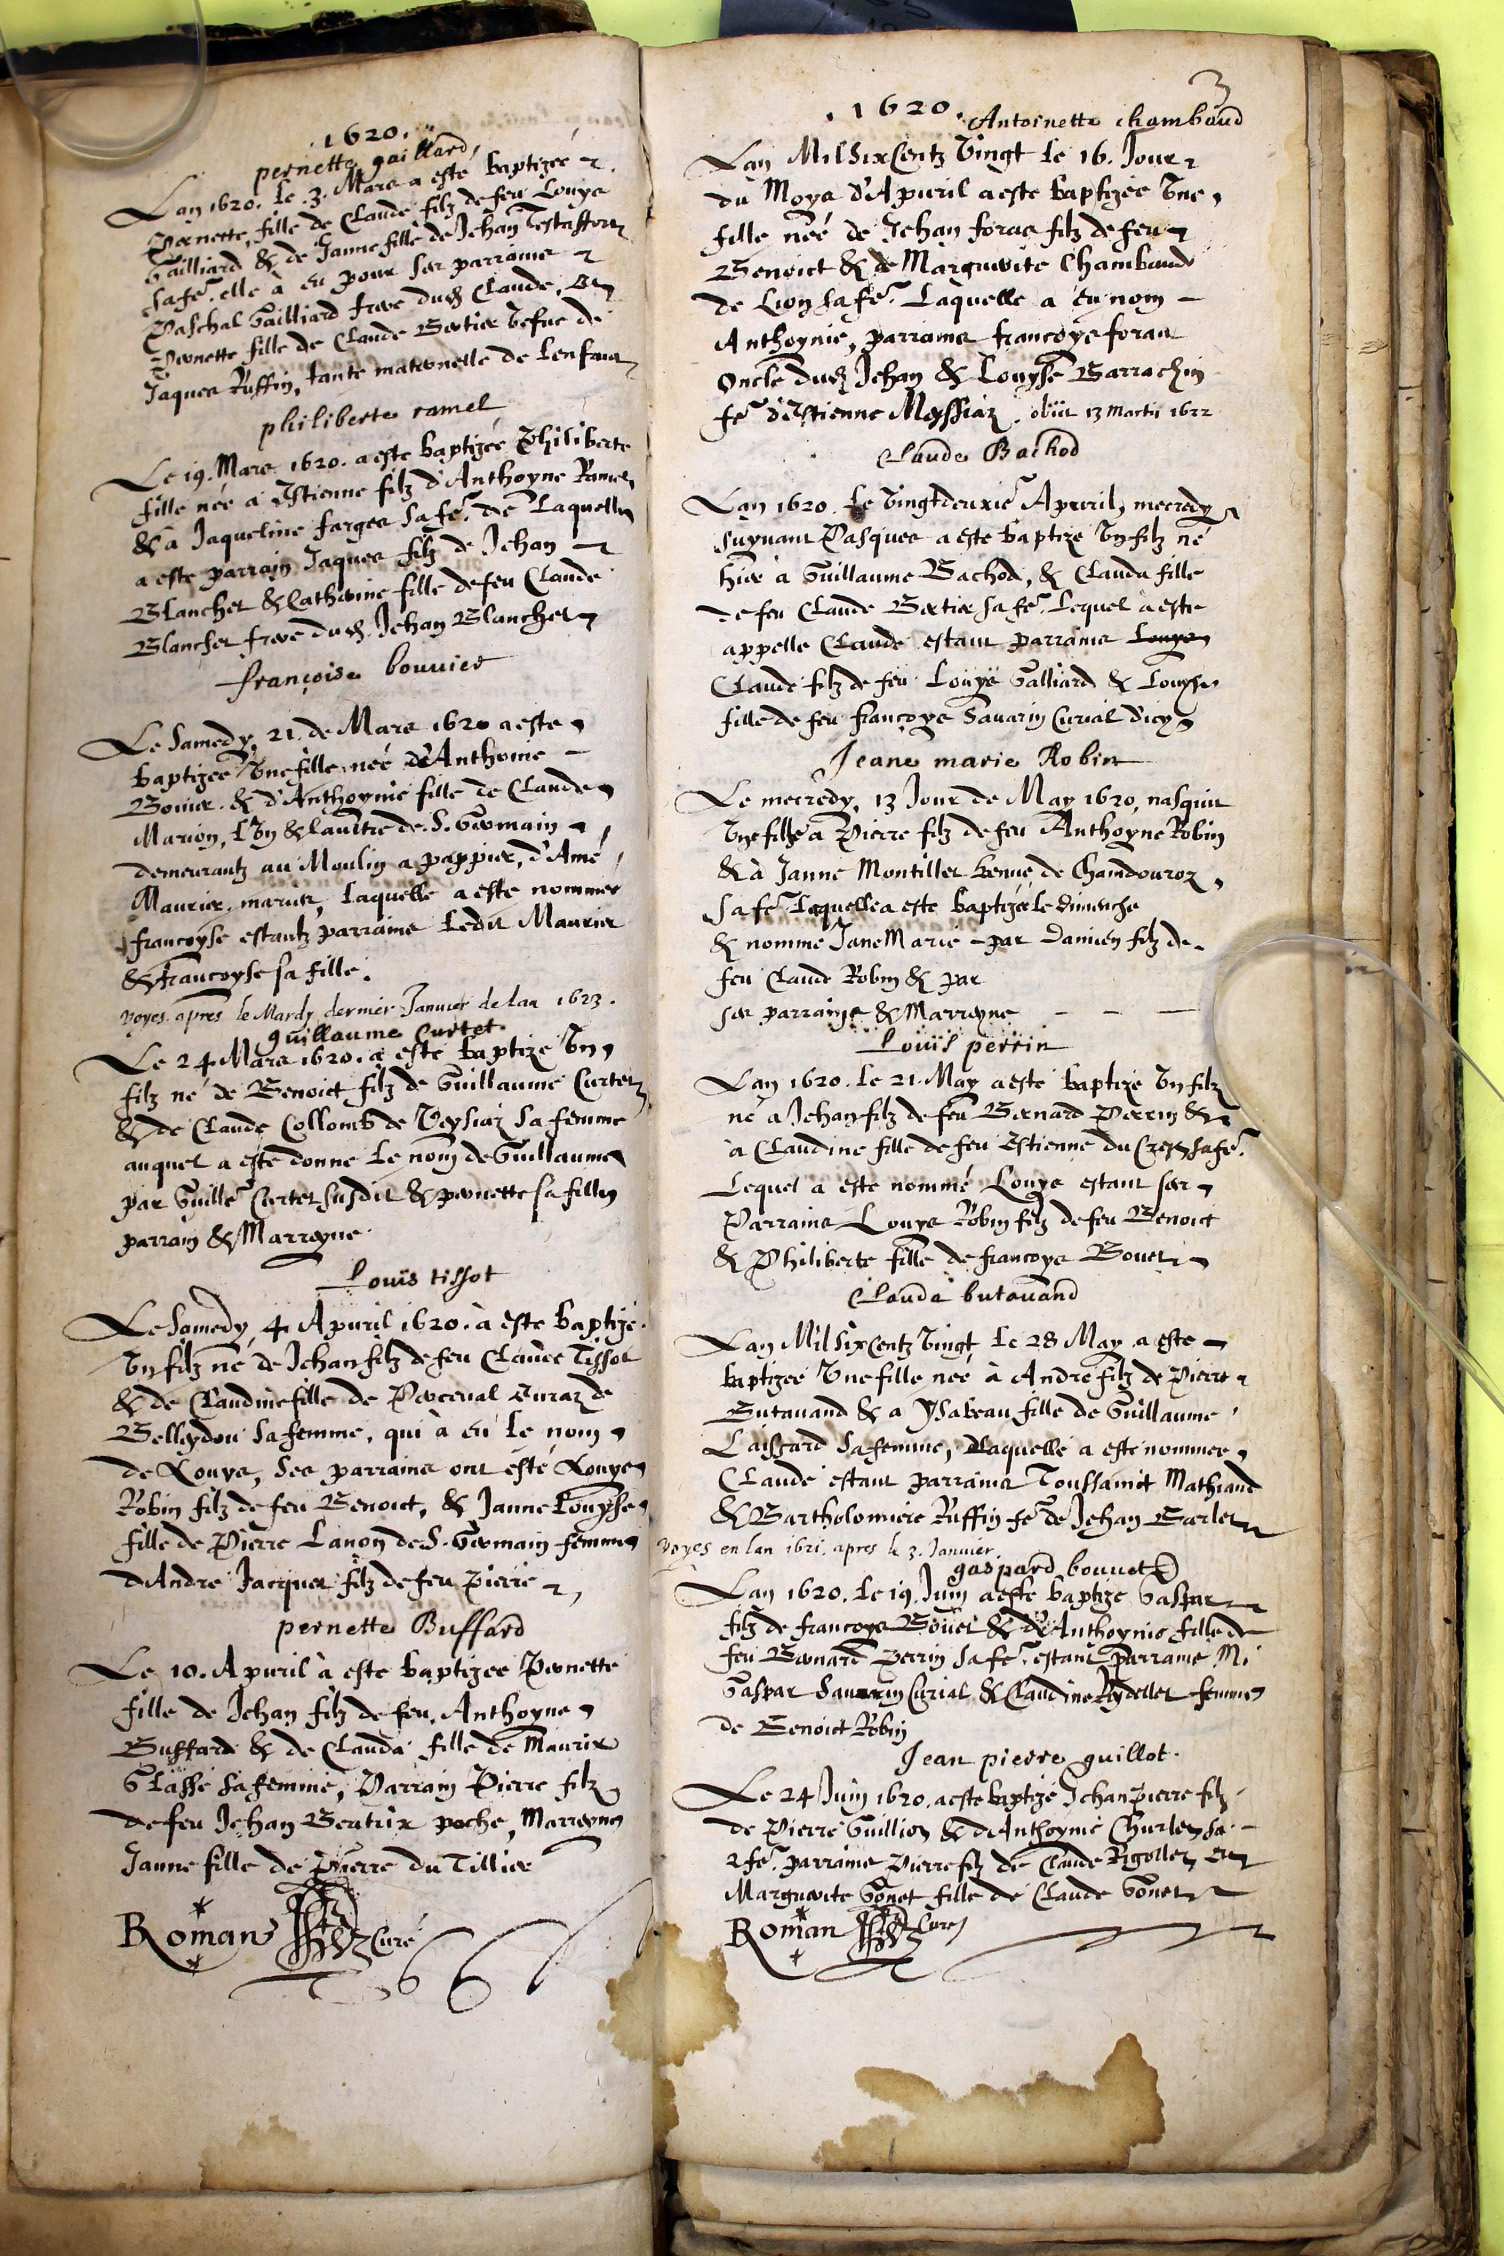 .1620.
pernette gaillard
Lan 1620. Le .3. Mars a esté baptizée
Pernette, fille de Claude filz de feu Louys
Gailliard & de Janne fille de Jehan
sa fe. elle à eu pour ses parrains
Paschal Gailliard frere dud. Claude, et
Pernette fille de Claude Bertier vefue de
Jaques Ruffin, tante maternelle de Lenfant
philiberte ramel
Le 19. Mars 1620. a este baptizée Philiberte
fille née à Estienne filz d'Anthoyne Ramel
& à Jaqueline farges sa fe. De Laquelle
a este parrain Jaques filz de Jehan
Blanchet & Catherine fille de feu Claude
Blanchet frere dud. Jehan Blanchet
françoise bouvier
Le Samedy, 21. de Mars 1620 a este
baptizée Vne fille née d'Anthoine
Bouier. & d'Anthoynie fille de Claude
Marion, L'Vn & Laultre de .S. Germain
demeurantz au Moulin a pappier, d'Amé
Maurier. Laquelle a este nommée
francoyse estantz parrains Ledit Maurier
& francoyse sa fille.
voyes. apres le Mardy dernier Januier de lan 1623.
guillaume curtet
Le 24 Mars 1620. a este baptize Vn
filz né de Benoict filz de Guillaume Curtet
& de Claude Collomb de Veysiaz sa femme
auquel a este donne Le nom de Guillaume
par Guille. Curtet susdit & pernette sa fille
parrain & Marreyne.
Louïs tissot
Le Samedy, 4 Apuril 1620. à este baptizé.
Vn filz né de Jehan filz de feu Claude Tissot
& de Claudine fille de Perceual de
Belleydou sa femme, qui à eu Le nom
de Louys, Ses parrains ont esté Louys
Robin filz de feu Benoict, & Janne Louyse
fille de Pierre Lanon de S. Germain femme
d'Andre Jacquet filz de feu Pierre
pernette Buffard
Le 10. Apuril à este baptizee Pernette
fille de Jehan filz de feu. Anthoyne
Buffard & de Clauda fille de Maurix
Glasse sa femme, Parrain Pierre filz
de feu Jehan Beatrix poche, Marreyne
Janne fille de Pierre du Tillier
Roman Curé
3
.1620.
Antoinette chambaud
Lan Mil Six Centz Vingt Le 16. Jour
du Moys d'Apuril a este baptizée Vne
fille née de Jehan foras filz de feu
Benoict & de Marguerite Chambaud
de Lion sa fe. Laquelle a eu nom
Anthoynie, parrains francoys foras
Oncle dud. Jehan & Louyse Barrachin
fe. d'Estienne Meyssiaz. obiit 13 martii 1622
Claude Bachod
Lan 1620. Le Vingtdeuxie. Apuril, mecredy
suyuant Pasques a este baptize Vn filz né
hier à Guillaume Bachod, & Clauda fille
de feu Claude Bertier sa fe. Lequel à este
appelle Claude estant parrains Louys
Claude filz de feu Louys Galliard & Louyse
fille de feu francoys Sauarin Curial d'icy
Jeane marie Robin
Le mecredy, 13 Jour de May 1620, nasquit
Vne fille à Pierre filz de feu Anthoyne Robin
& à Janne Montillet de Chandouroz
sa fe. Laquelle a este baptizée Le dimenche
& nommé Jane Marie par Damien filz de
feu Claude Robin & par
ses parrains & Marreyne
Louïs perrin
Lan 1620. Le 21. May a esté baptize Vn filz
né a Jehan filz de feu Bernard Perrin &
à Claudine fille de feu Estienne du Crest sa fe.
Lequel a este nommé Louys estant ses
Parrains Louys Robin filz de feu Benoict
& Philiberte fille de francoys Bouet
Clauda butavand
Lan Mil Six Centz Vingt Le 28 May a este
baptizee Vne fille née à André filz de Pierre
Butauand & a Ysabeau fille de Guillaume
sa femme, Laquelle a este nommee
Claude estant parrains Toussainct Mathiand
& Bartholomiere Ruffin fe. de Jehan
voyes en lan 1621. apres le 3. Januier.
gaspard bouvet
Lan 1620. Le 19. Juin a este baptize Gaspar
filz de francoys Bouet & d'Anthoynie fille de
feu Bernard Perrin sa fe. estant parrains Mi
Gaspar Sauarin Curial & Claudine Reydellet femme
de Benoict Robin
Jean pierre guillot.
Le 24 Juin 1620. a este baptizé Jehan Pierre filz
de Pierre Guillion & d'Anthoynie sa
fe. parrains Pierre filz de Claude Rigollet, et
Marguerite Gonet fille de Claude Gonet
Roman Curé